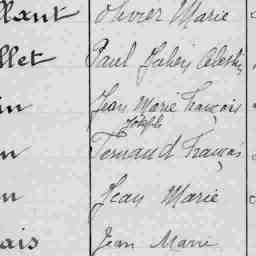 llant Olivier Marie
llet Paul Fabien Célestin
in Jean Marie François
Joseph
n Fernand François
n Jean Marie
ais Jean Marie